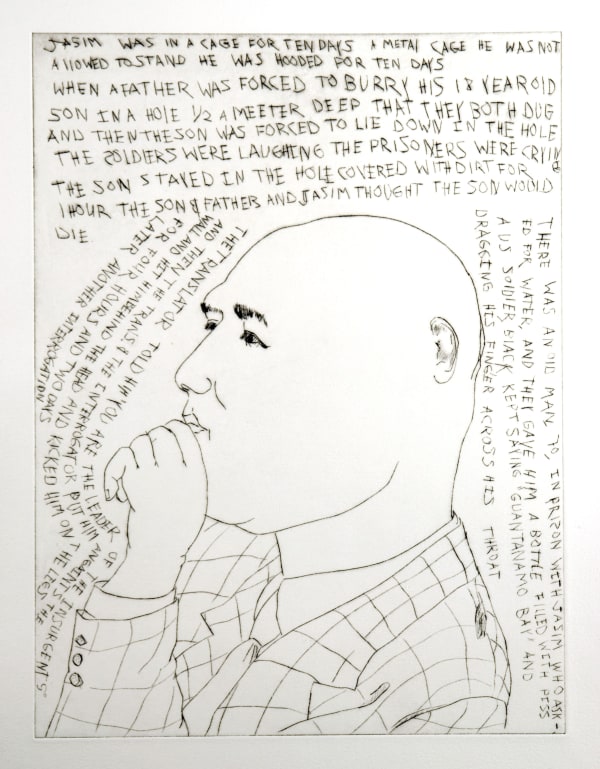 JASIM WAS IN A CAGE FOR TEN DAYS A METAL CAGE HE WAS NOT
ALLOWED TO STAND HE WAS HOODED FOR TEN DAYS
WHEN A FATHER WAS FORCED TO BURRY HIS 18 YEAR OLD
SON IN A HOLE 1/2 A MEETER DEEP THAT THEY BOTH DUG
AND THEN THE SON WAS FORCED TO LIE DOWN IN THE HOLE
THE SOLDIERS WERE LAUGHING THE PRISONERS WERE CRYING
THE SON STAYED IN THE HOLE COVERED WITH DIRT FOR
1 HOUR THE SON & FATHER AND JASIM THOUGHT THE SON WOULD
DIE
THE TRANSLATOR TOLD HIM YOU ARE THE LEADER OF THE INSURGENTS
AND THEN THE TRANS. & THE INTERROGATOR PUT HIM AGAINST THE
WALL AND HIT HIM BEHIND THE HEAD AND KICKED HIM ON THE LEGS
FOR FOUR HOURS AND TWO DAYS
LATER ANOTHER INTERROGATION
THERE WAS AN OLD MAN 70, IN PRIZON WITH JASIM WHO ASK-
ED FOR WATER, AND THEY GAVE HIM A BOTTLE FILLED WITH PESS
A US SOLDIER BLACK KEPT SAYING 'GUANTANAMO BAY' AND
DRAGGING HIS FINGER ACROSS HIS THROAT